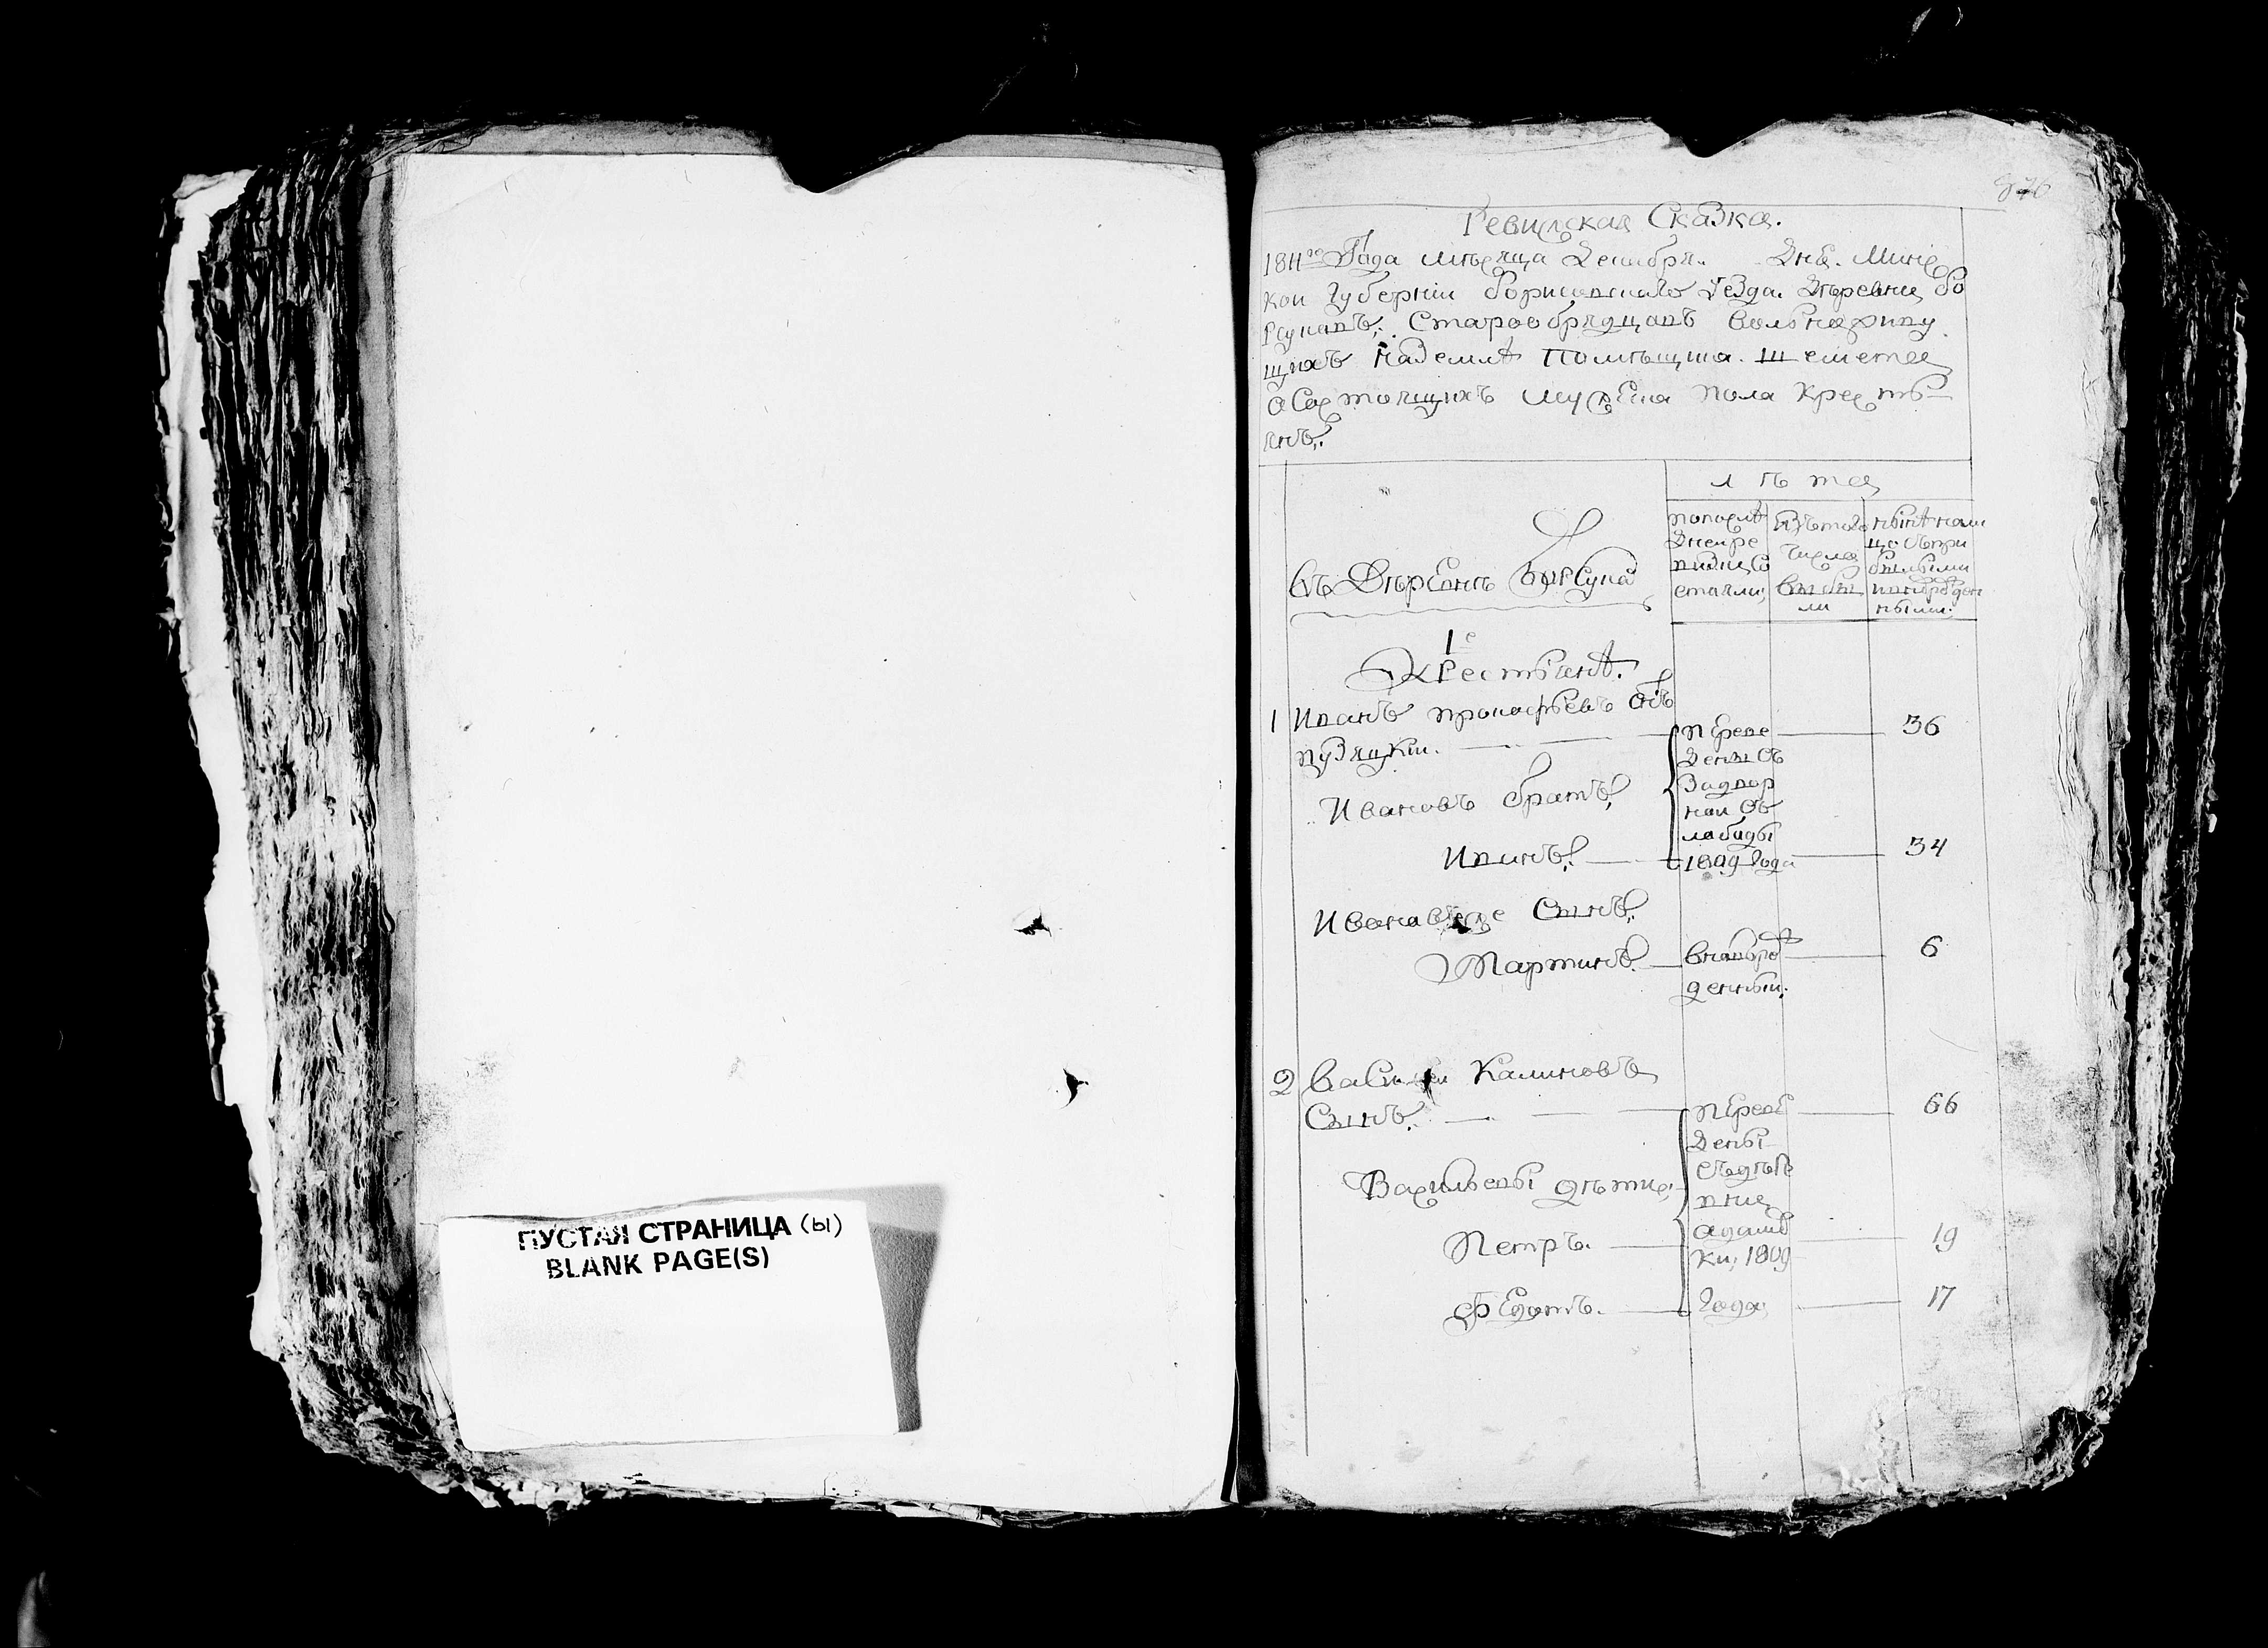 ПУСТАЯ СТРАНИЦА (ы)
BLANK PAGE(S)
876
Ревизская Сказка.
1811го Года месяца Декабря. Дня. Минс
кои Губернии борисовскаго уезда. Деревни бо
рсуковъ. Старообрядцовъ вольноживу
щихъ на земле Помещика.
о Состоящихъ мужеска пола Кресть
янъ.
лета
въ Деревне борсука
по после
дней ре
визии со
стояли
изъ того
числа
выбы
ли
ныне на ли
цо съ при
былыми
и новорожден
ными.
1е
Крестьяне.
1 Иванъ прокофьевъ снъ
пузяцки.
переве
дены съ
Задвор
ной Сб
лободы
1809 Года
36
Ивановъ братъ
Иванъ
34
Иванавъ же Сынъ
Мартинъ
вновьро
денныи
6
2 Василеи Калиновъ
Сынъ.
переве
дены
66
Васильевы дети
Петръ.
1809
19
Федотъ.
Года
17